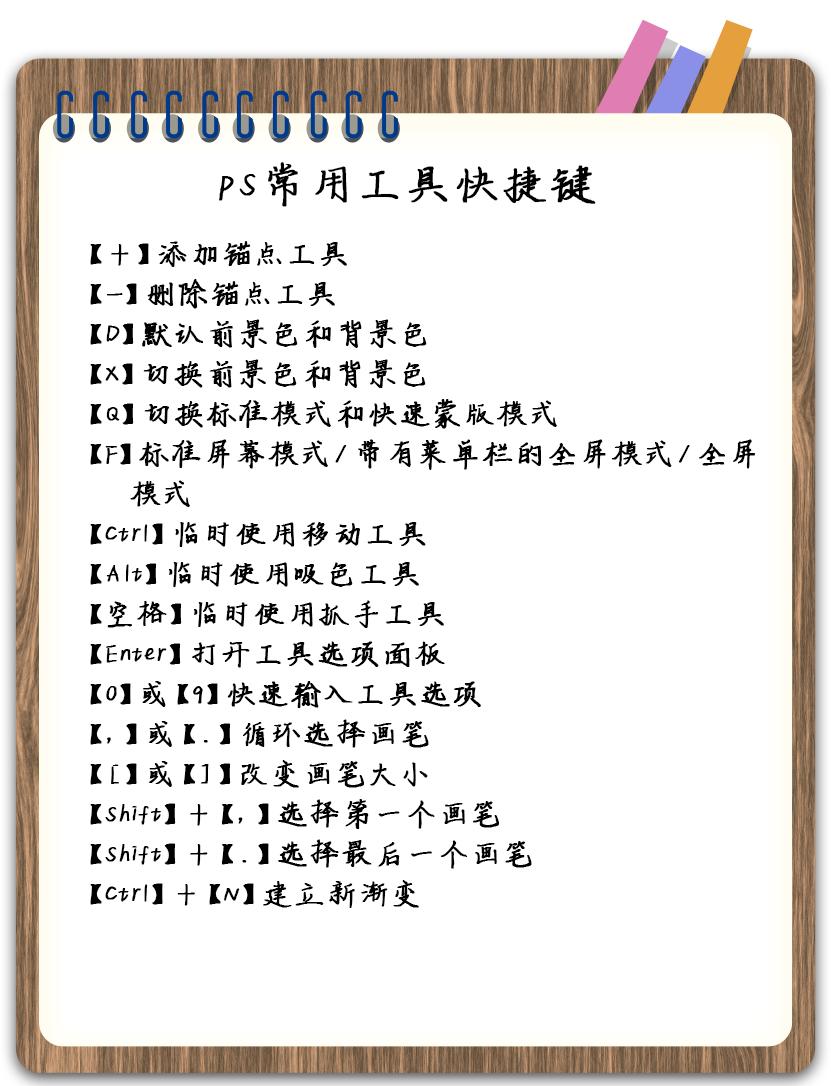 PS常用工具快捷键
【+】添加锚点工具
【-】删除锚点工具
【D】默认前景色和背景色
【X】切换前景色和背景色
【Q】切换标准模式和快速蒙版模式
【F】标准屏幕模式/带有菜单栏的全屏模式/全屏
模式
【Ctrl】临时使用移动工具
【Alt】临时使用吸色工具
【空格】临时使用抓手工具
【Enter】打开工具选项面板
【0】或【9】快速输入工具选项
【,】或【.】循环选择画笔
【[】或【]】改变画笔大小
【Shift】+【,】选择第一个画笔
【Shift】+【.】选择最后一个画笔
【Ctrl】+【N】建立新渐变